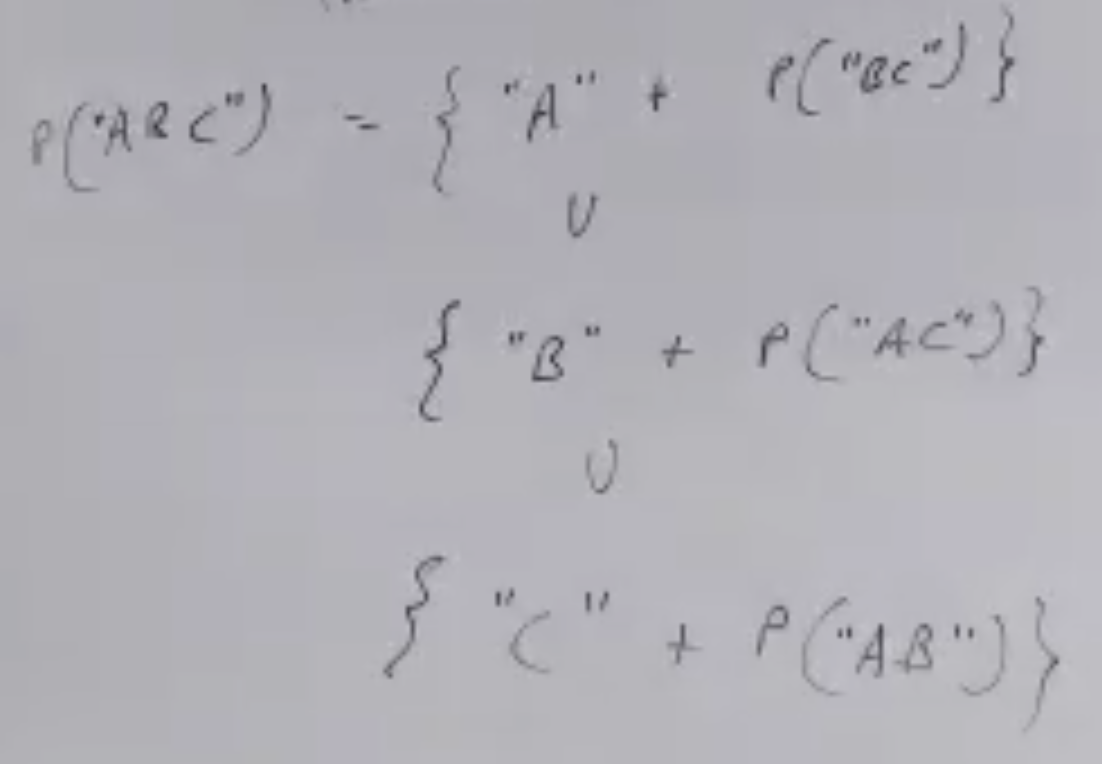 P("ABC") = { "A" + P("BC") }
U
{ "B" + P("AC") }
U
{ "C" + P("AB") }